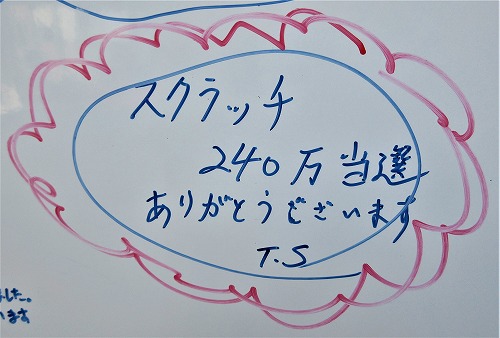 スクラッチ
240万当選
ありがとうございます
T.S
した。
います